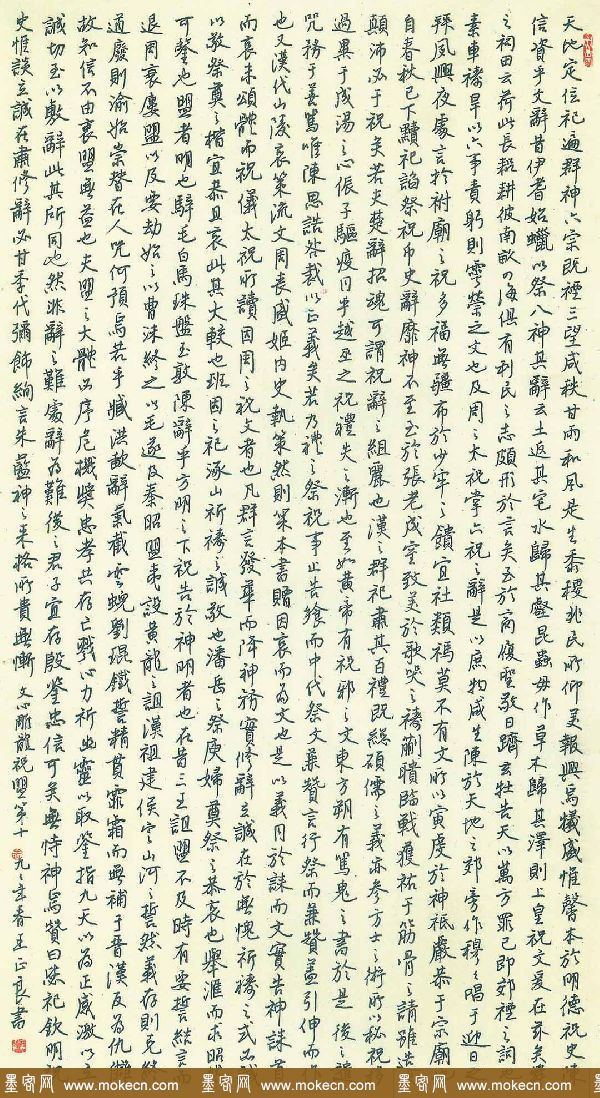 天地定位祀遍群神六宗既禋三望咸秩甘雨和風是生黍稷兆民所仰美報興焉犧盛惟馨本於明德祝史陳
信資乎文辭昔伊耆始蠟以祭八神其辭云土返其宅水歸其壑昆蟲毋作草木歸其澤則上皇祝文爰在茲矣
之祠田云荷此長耜耕彼南畝四海俱有利民之志頗形於言矣至於商履聖敬日躋玄牡告天以萬方罪己即郊禋之詞也
素車禱旱以六事責躬則雩禜之文也及周之太祝掌六祝之辭是以庶物咸生陳於天地之郊旁作穆々唱于迎日之
拜夙興夜處言於祔廟之祝多福無疆布於少牢之饋宜社類禡莫不有文所以寅虔於神祇嚴恭于宗廟也
自春秋已下黷祀諂祭祝幣史辭靡神不至至於張老成室致美於歌哭之禱蒯聵臨戰獲祐于筋骨之請雖造
顛沛必于祝矣若夫楚辭招魂可謂祝辭之組麗也漢之群祀肅其百禮既總碩儒之義亦參方士之術所以秘祝移
過異于成湯之心侲子驅疫同乎越巫之祝禮失之漸也至如黃帝有祝邪之文東方朔有罵鬼之書於是後之譴
咒務于善罵唯陳思詰咎裁以正義矣若乃禮之祭祝事止告饗而中代祭文兼贊言行祭而兼贊蓋引伸而作
也又漢代山陵哀策流文周喪盛姬內史執策然則策本書贈因哀而為文也是以義同於誄而文實告神誄首
而哀末頌體而祝儀太祝所讀因周之祝文者也凡群言發華而降神務實修辭立誠在於無愧祈禱之式必誠
以敬祭奠之楷宜恭且哀此其大較也班固之祀涿山祈禱之誠敬也潘岳之祭庾婦奠祭之恭哀也舉匯而求昭然
可鑒也盟者明也騂毛白馬珠盤玉敦陳辭乎方明之下祝告於神明者也在昔三王詛盟不及時有要誓結言而
退周衰屢盟以及要劫始之以曹沫終之以毛遂及秦昭盟夷設黃龍之詛漢祖建侯定山河之誓然義存則克終
道廢則渝始崇替在人咒何預焉若乎臧洪歃辭氣截雲蜺劉琨鐵誓精貫霏霜而無補于晉漢反為仇讎
故知信不由衷盟無益也夫盟之大體必序危機獎忠孝共存亡戮心力祈幽靈以取鑒指九天以為正感激以立
誠切至以敷辭此其所同也然非辭之難處辭為難後之君子宜存殷鑒忠信可矣無恃神焉贊曰毖祀欽明祝
史惟談立誠在肅修辭必甘季代彌飾絢言朱藍神之來格所貴無慚 文心雕龍祝盟第十 九九年春王正良書
墨客网 www.mokecn.com 墨客网 www.mokecn.com 墨客网 www.mokecn.com